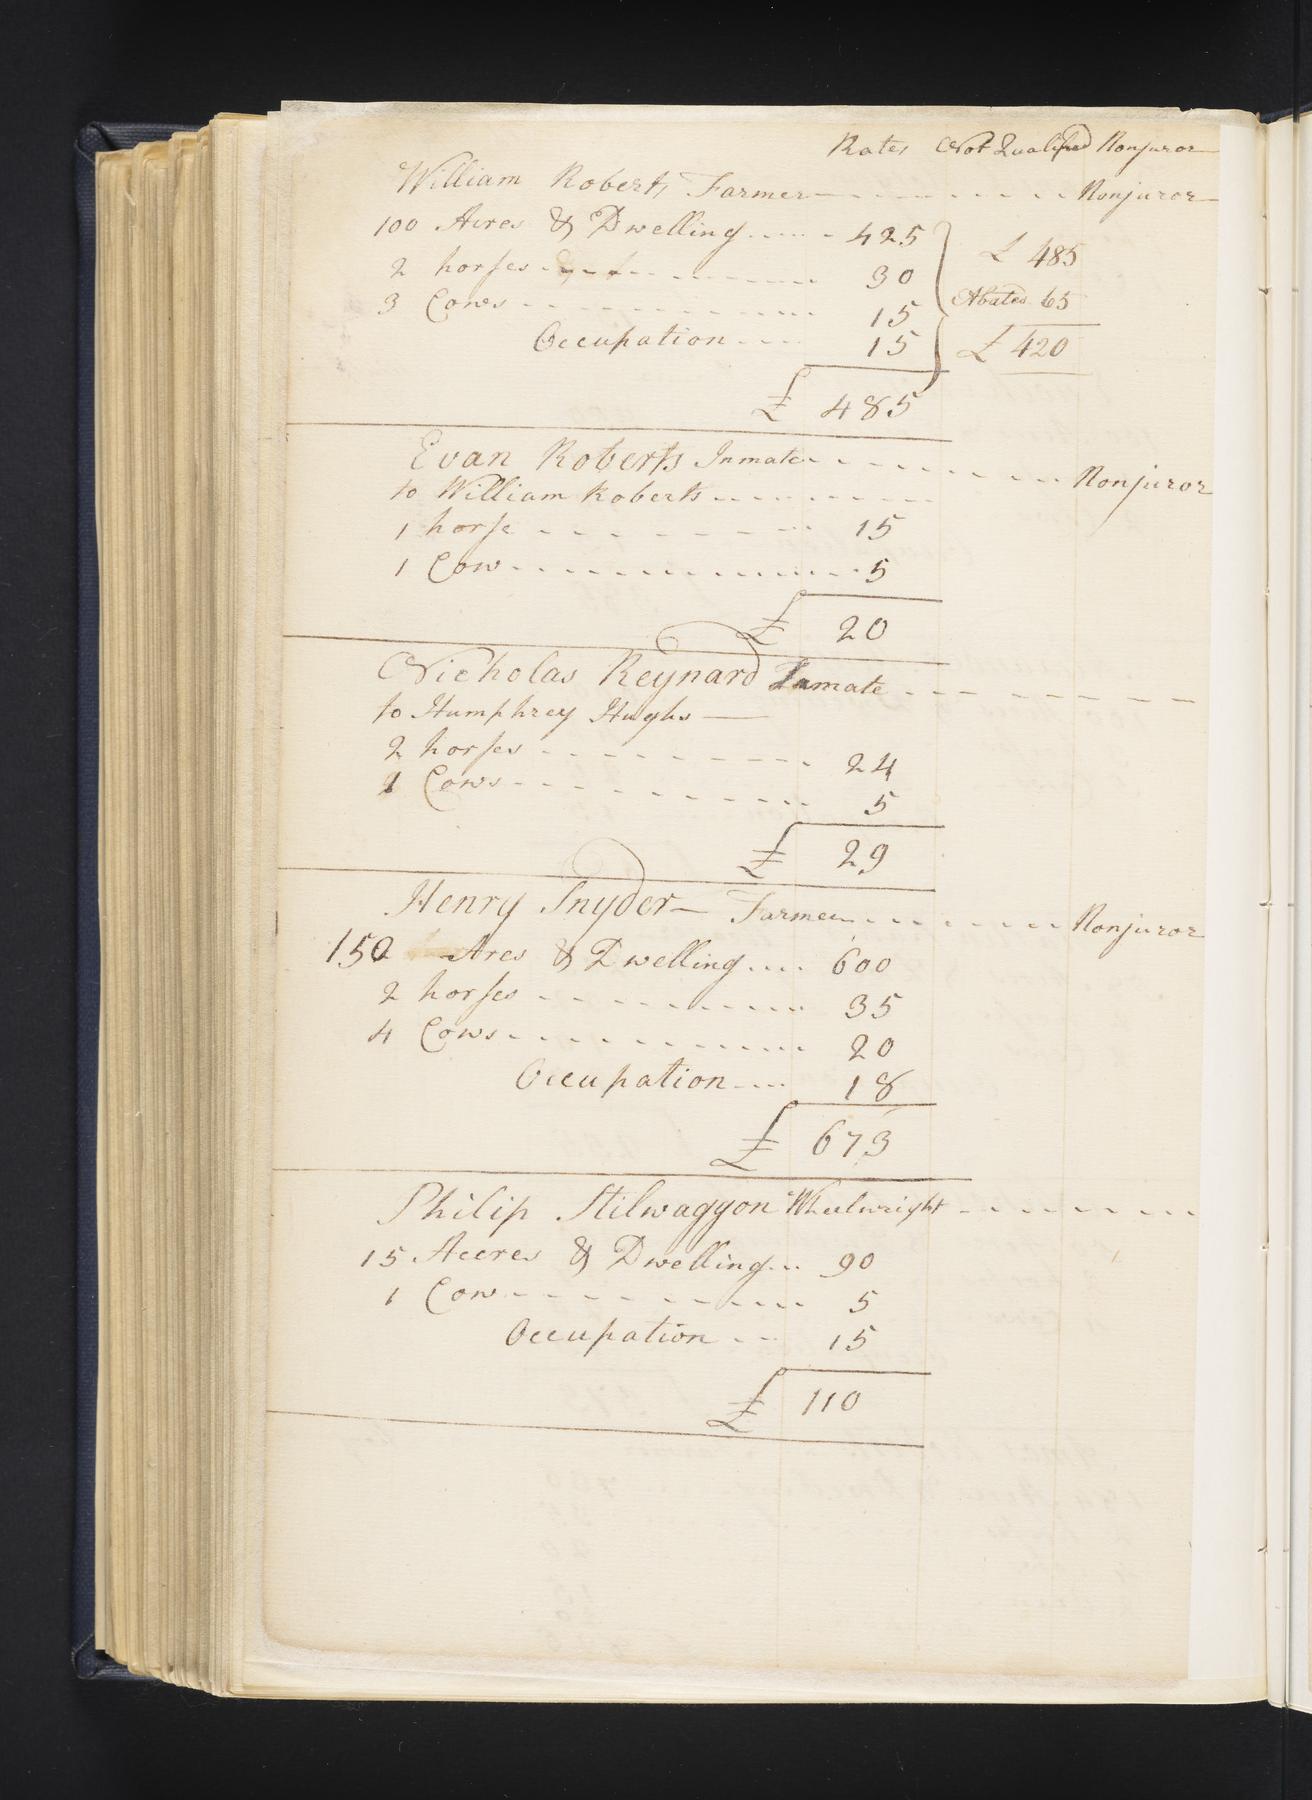 Rates Not Qualified Nonjuror
William Roberts Farmer Nonjuror
100 Acres & Dwelling 425
2 horses 30
3 Cows 15
Occupation 15
£ 485
£ 485
Abated 65
£ 420
Evan Roberts Inmate Nonjuror
to William Roberts
1 horse 15
1 Cow 5
£ 20
Nicholas Reynard Inmate
to Humphrey Hughs
2 horses 24
1 Cows 5
£ 29
Henry Snyder Farmer Nonjuror
150 Acres & Dwelling 600
2 horses 35
4 Cows 20
Occupation 18
£ 673
Philip Stilwaggon Wheelwright
15 Accres & Dwelling 90
1 Cow 5
Occupation 15
£ 110